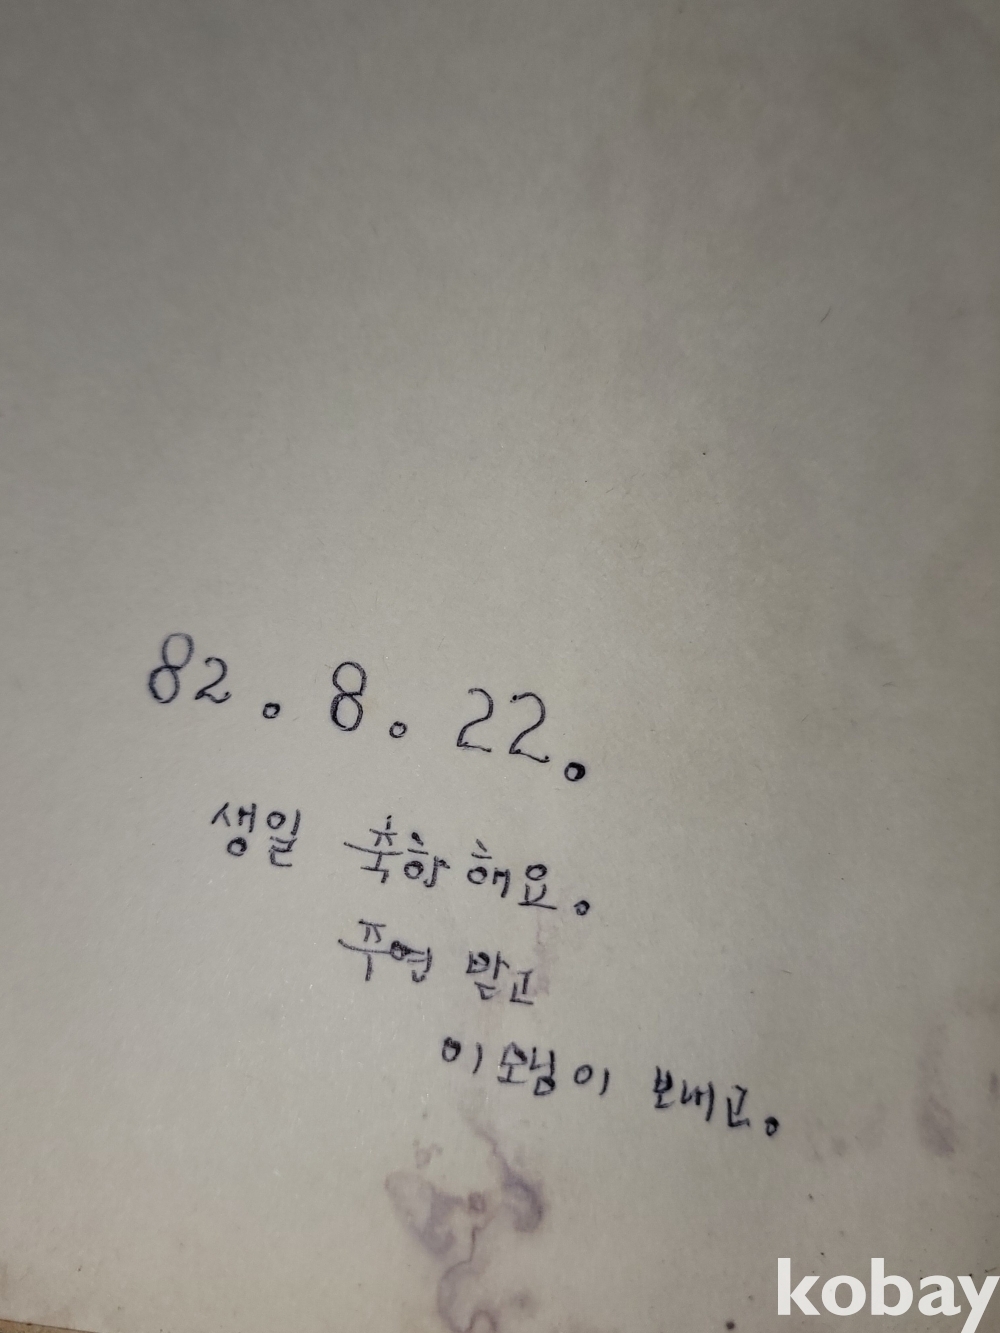 82. 8. 22.
생일 축하해요.
주연 받고
이소남이 보내고.
kobay